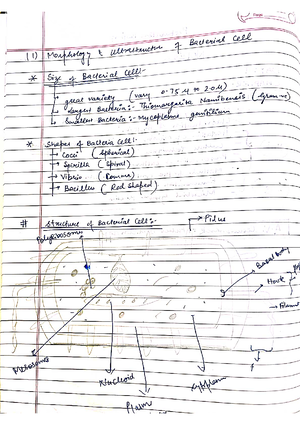 (1) Morphology & Ultrastructure of Bacterial Cell
* Size of Bacterial Cell:-
↳ great variety (vary 0.75 μ to 2.0 μ)
↳ Largest Bacteria:- Thiomargarita Namibiensis (
↳ Smallest Bacteria:- Mycoplasma genitilium
* Shapes of Bacteria Cell:-
→ Cocci (Spherical)
→ Spirilla (Spiral)
→ Vibrio (
→ Bacillus (Rod Shaped)
# Structure of Bacterial Cell:-
→ Pilus
Polyribosome
Basal body
Hook
Mesosome
Nucleoid
Plasm
Cytoplasm